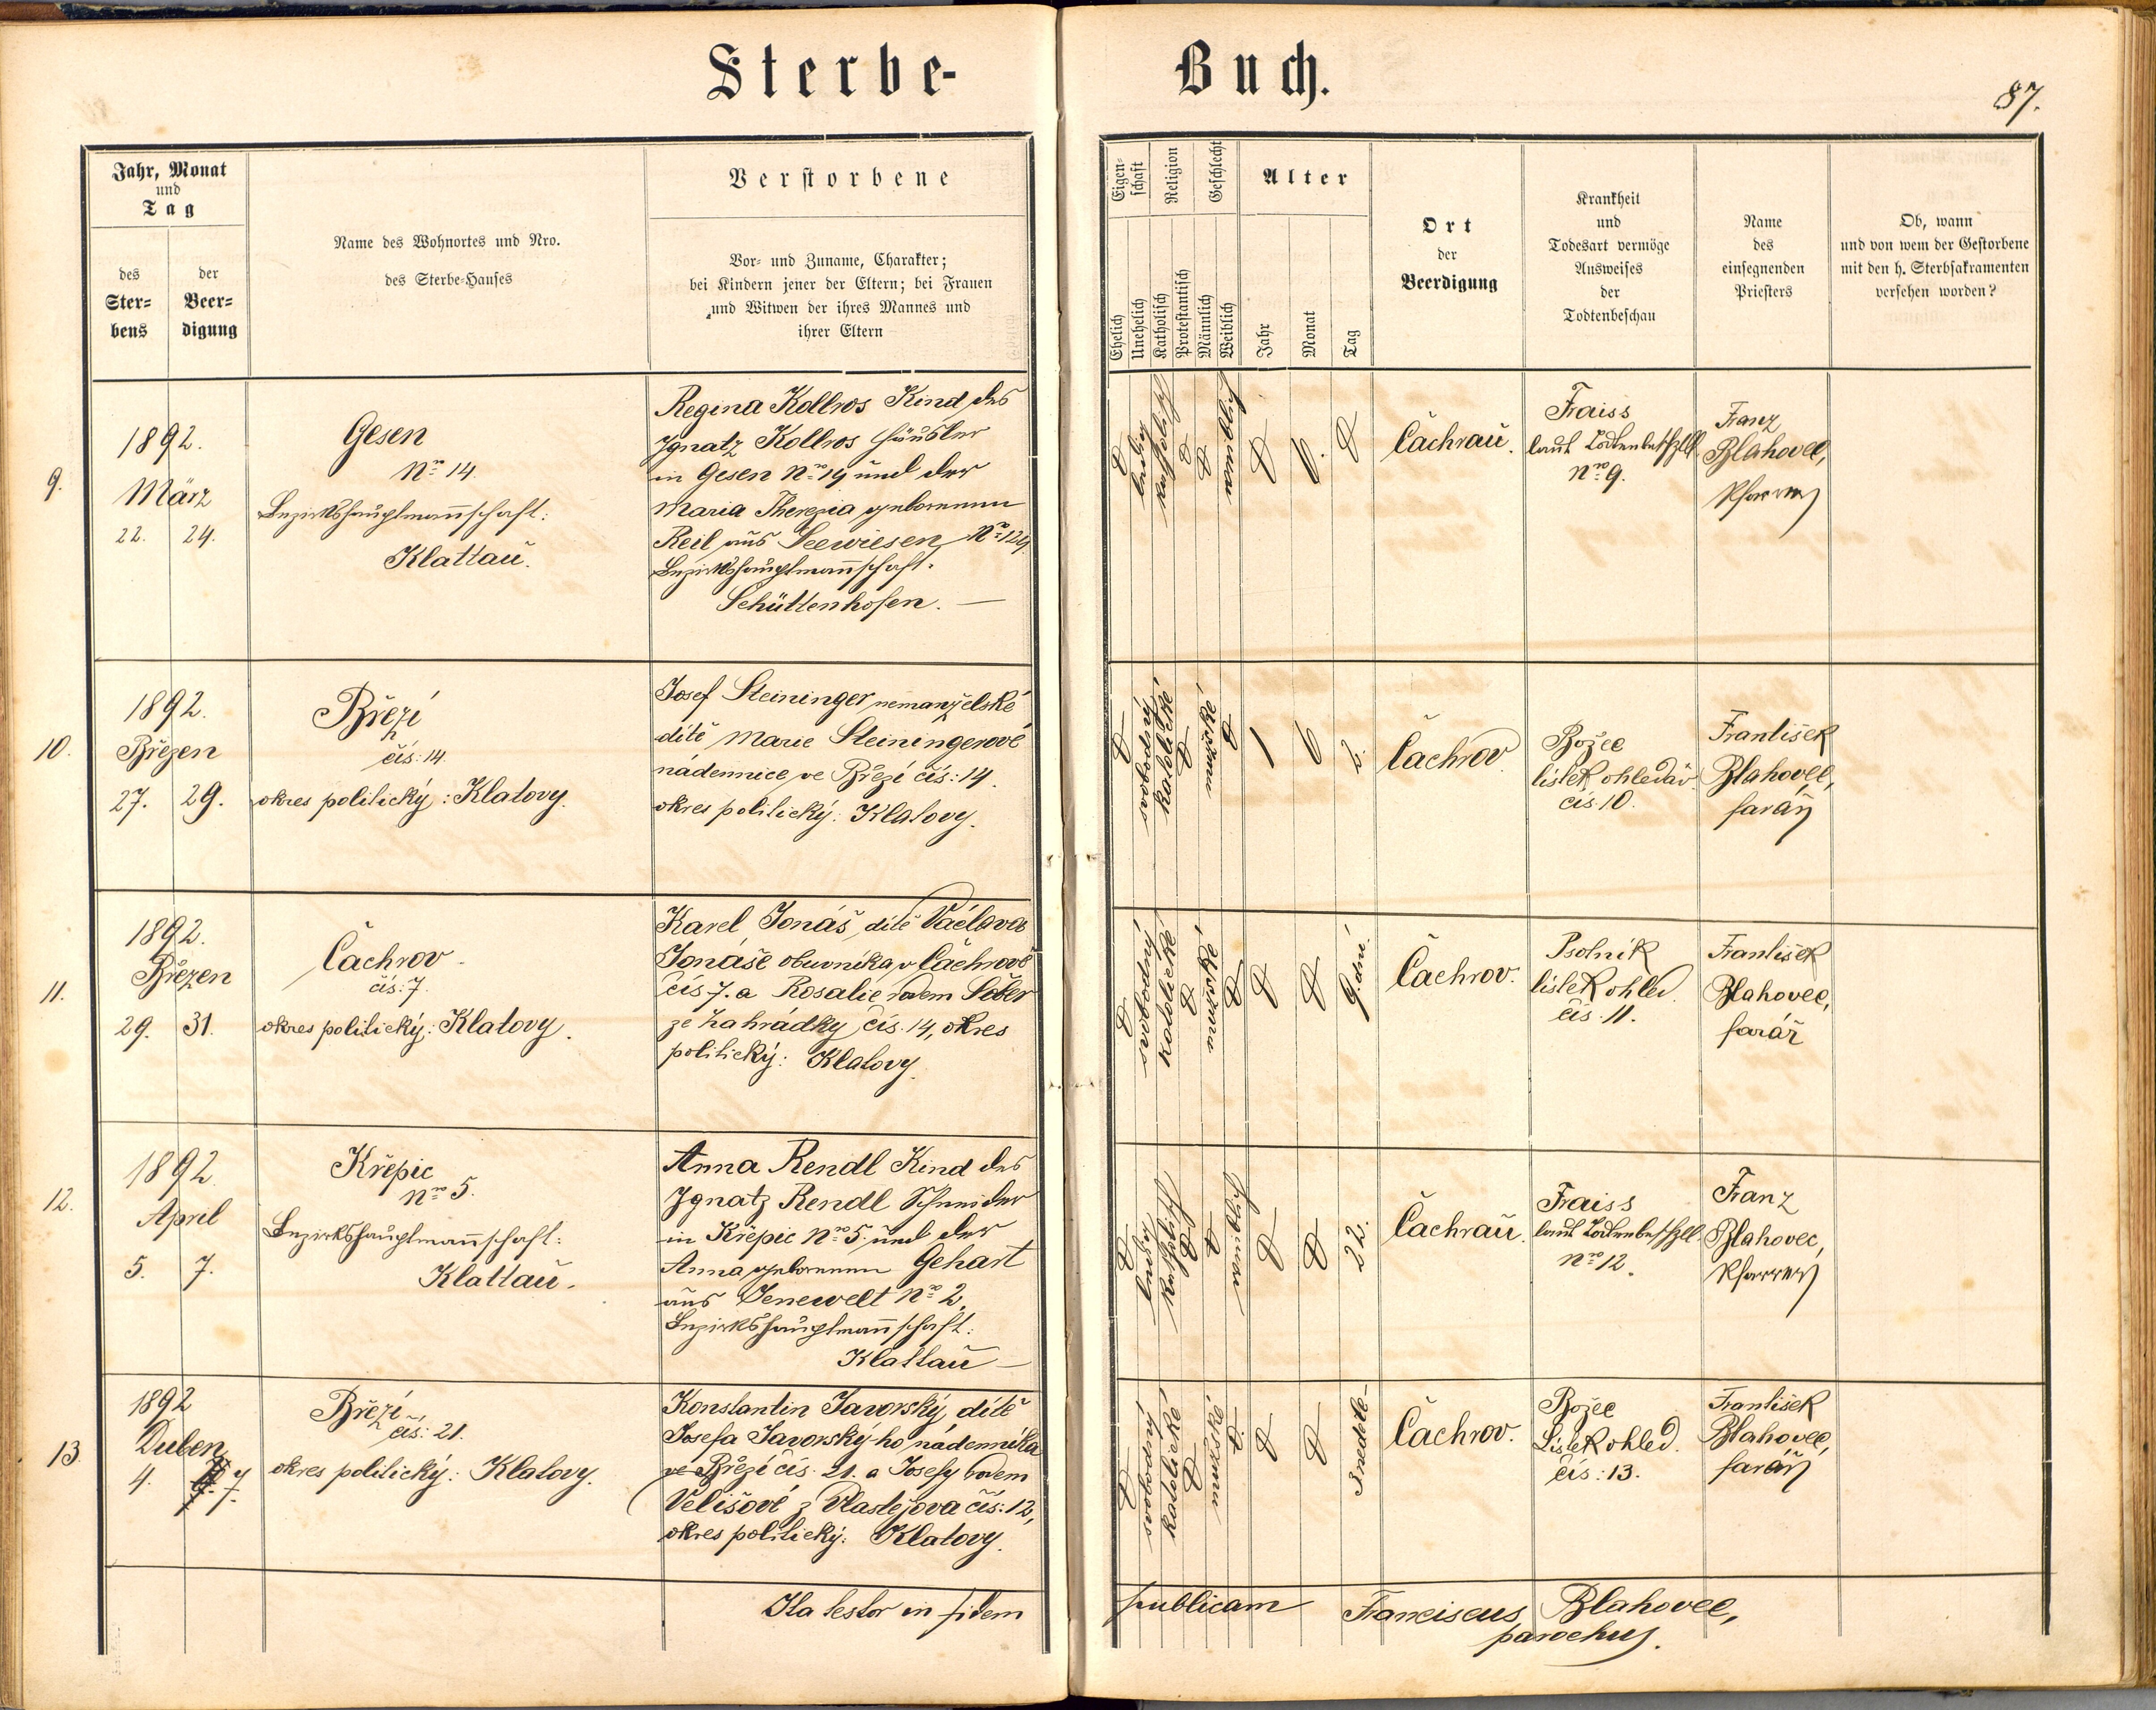 Sterbe-
Buch.
87.
Jahr, Monat
und
Tag
des
Ster-
bens
der
Beer-
digung
Name des Wohnortes und Nro.
des Sterbe-Hauses
Verstorbene
Vor- und Zuname, Charakter;
bei Kindern jener der Eltern; bei Frauen
und Witwen der ihres Mannes und
ihrer Eltern
Eigen-
schaft
Religion
Geschlecht
Ehelich
Unehelich
Katholisch
Protestantisch
Männlich
Weiblich
Alter
Jahr
Monat
Tag
Ort
der
Beerdigung
Krankheit
und
Todesart vermöge
Ausweises
der
Todtenbeschau
Name
des
einsegnenden
Priesters
Ob, wann
und von wem der Gestorbene
mit den h. Sterbsakramenten
versehen worden?
9.
1892.
März
22. 24.
Gesen
Nro 14.
Bezirkshauptmannschaft:
Klattau.
Regina Kollros Kind des
Ignatz Kollros Häusler
in Gesen Nro 14 und der
Maria Therezia geborenen
Reil aus Seewiesen Nro 124.
Bezirkshauptmannschaft.
Schüttenhofen. —
ledig
katholisch
weiblich
6.
Čachrau.
Fraiss
laut Todtenbeschzttl.
Nro 9.
Franz
Blahovec,
Pfarrer
10.
1892.
Březen
27. 29.
Březí
čís: 14.
okres politický: Klatovy.
Josef Steininger nemanželské
dítě Marie Steiningerové
nádennice ve Březí čís: 14.
okres politický: Klatovy.
svobodný
katolické
mužské
1 6 2.
Čachrov
Božec
lístek ohledáv.
čís. 10.
František
Blahovec,
farář
11.
1892.
Březen
29. 31.
Čachrov.
čís: 7.
okres politický: Klatovy.
Karel Jonáš, dítě Václava
Jonáše obuvníka v Čachrově
čís 7. a Rosalie rodem Šéber
ze Zahrádky čís. 14, okres
politický: Klatovy.
svobodný
katolické
mužské
9. dní.
Čachrov.
Psotník
lístek ohled.
čís. 11.
František
Blahovec,
farář
12.
1892.
April
5. 7.
Křepic
Nro 5.
Bezirkshauptmannschaft:
Klattau.
Anna Rendl Kind des
Ignatz Rendl Schneider
in Křepic Nro 5. und der
Anna geborenen Gehart
aus Jenewelt Nro 2.
Bezirkshauptmannschaft:
Klattau —
ledig
katholisch
weiblich
22.
Čachrau.
Fraiss
laut Todtenbeschzttl.
Nro 12.
Franz
Blahovec,
Pfarrer
13.
1892
Duben
4. 7.
Březí
čís: 21.
okres politický: Klatovy.
Konstantin Javorský, dítě
Josefa Javorský-ho nádenníka
ve Březí čís. 21. a Josefy rodem
Velišové z Vlastějova čís: 12,
okres politický: Klatovy.
svobodný
katolické
mužské
3 neděle-
Čachrov.
Božec
Lístek ohled.
čís: 13.
František
Blahovec,
farář
Ita testor in fidem
publicam Franciscus Blahovec,
parochus.